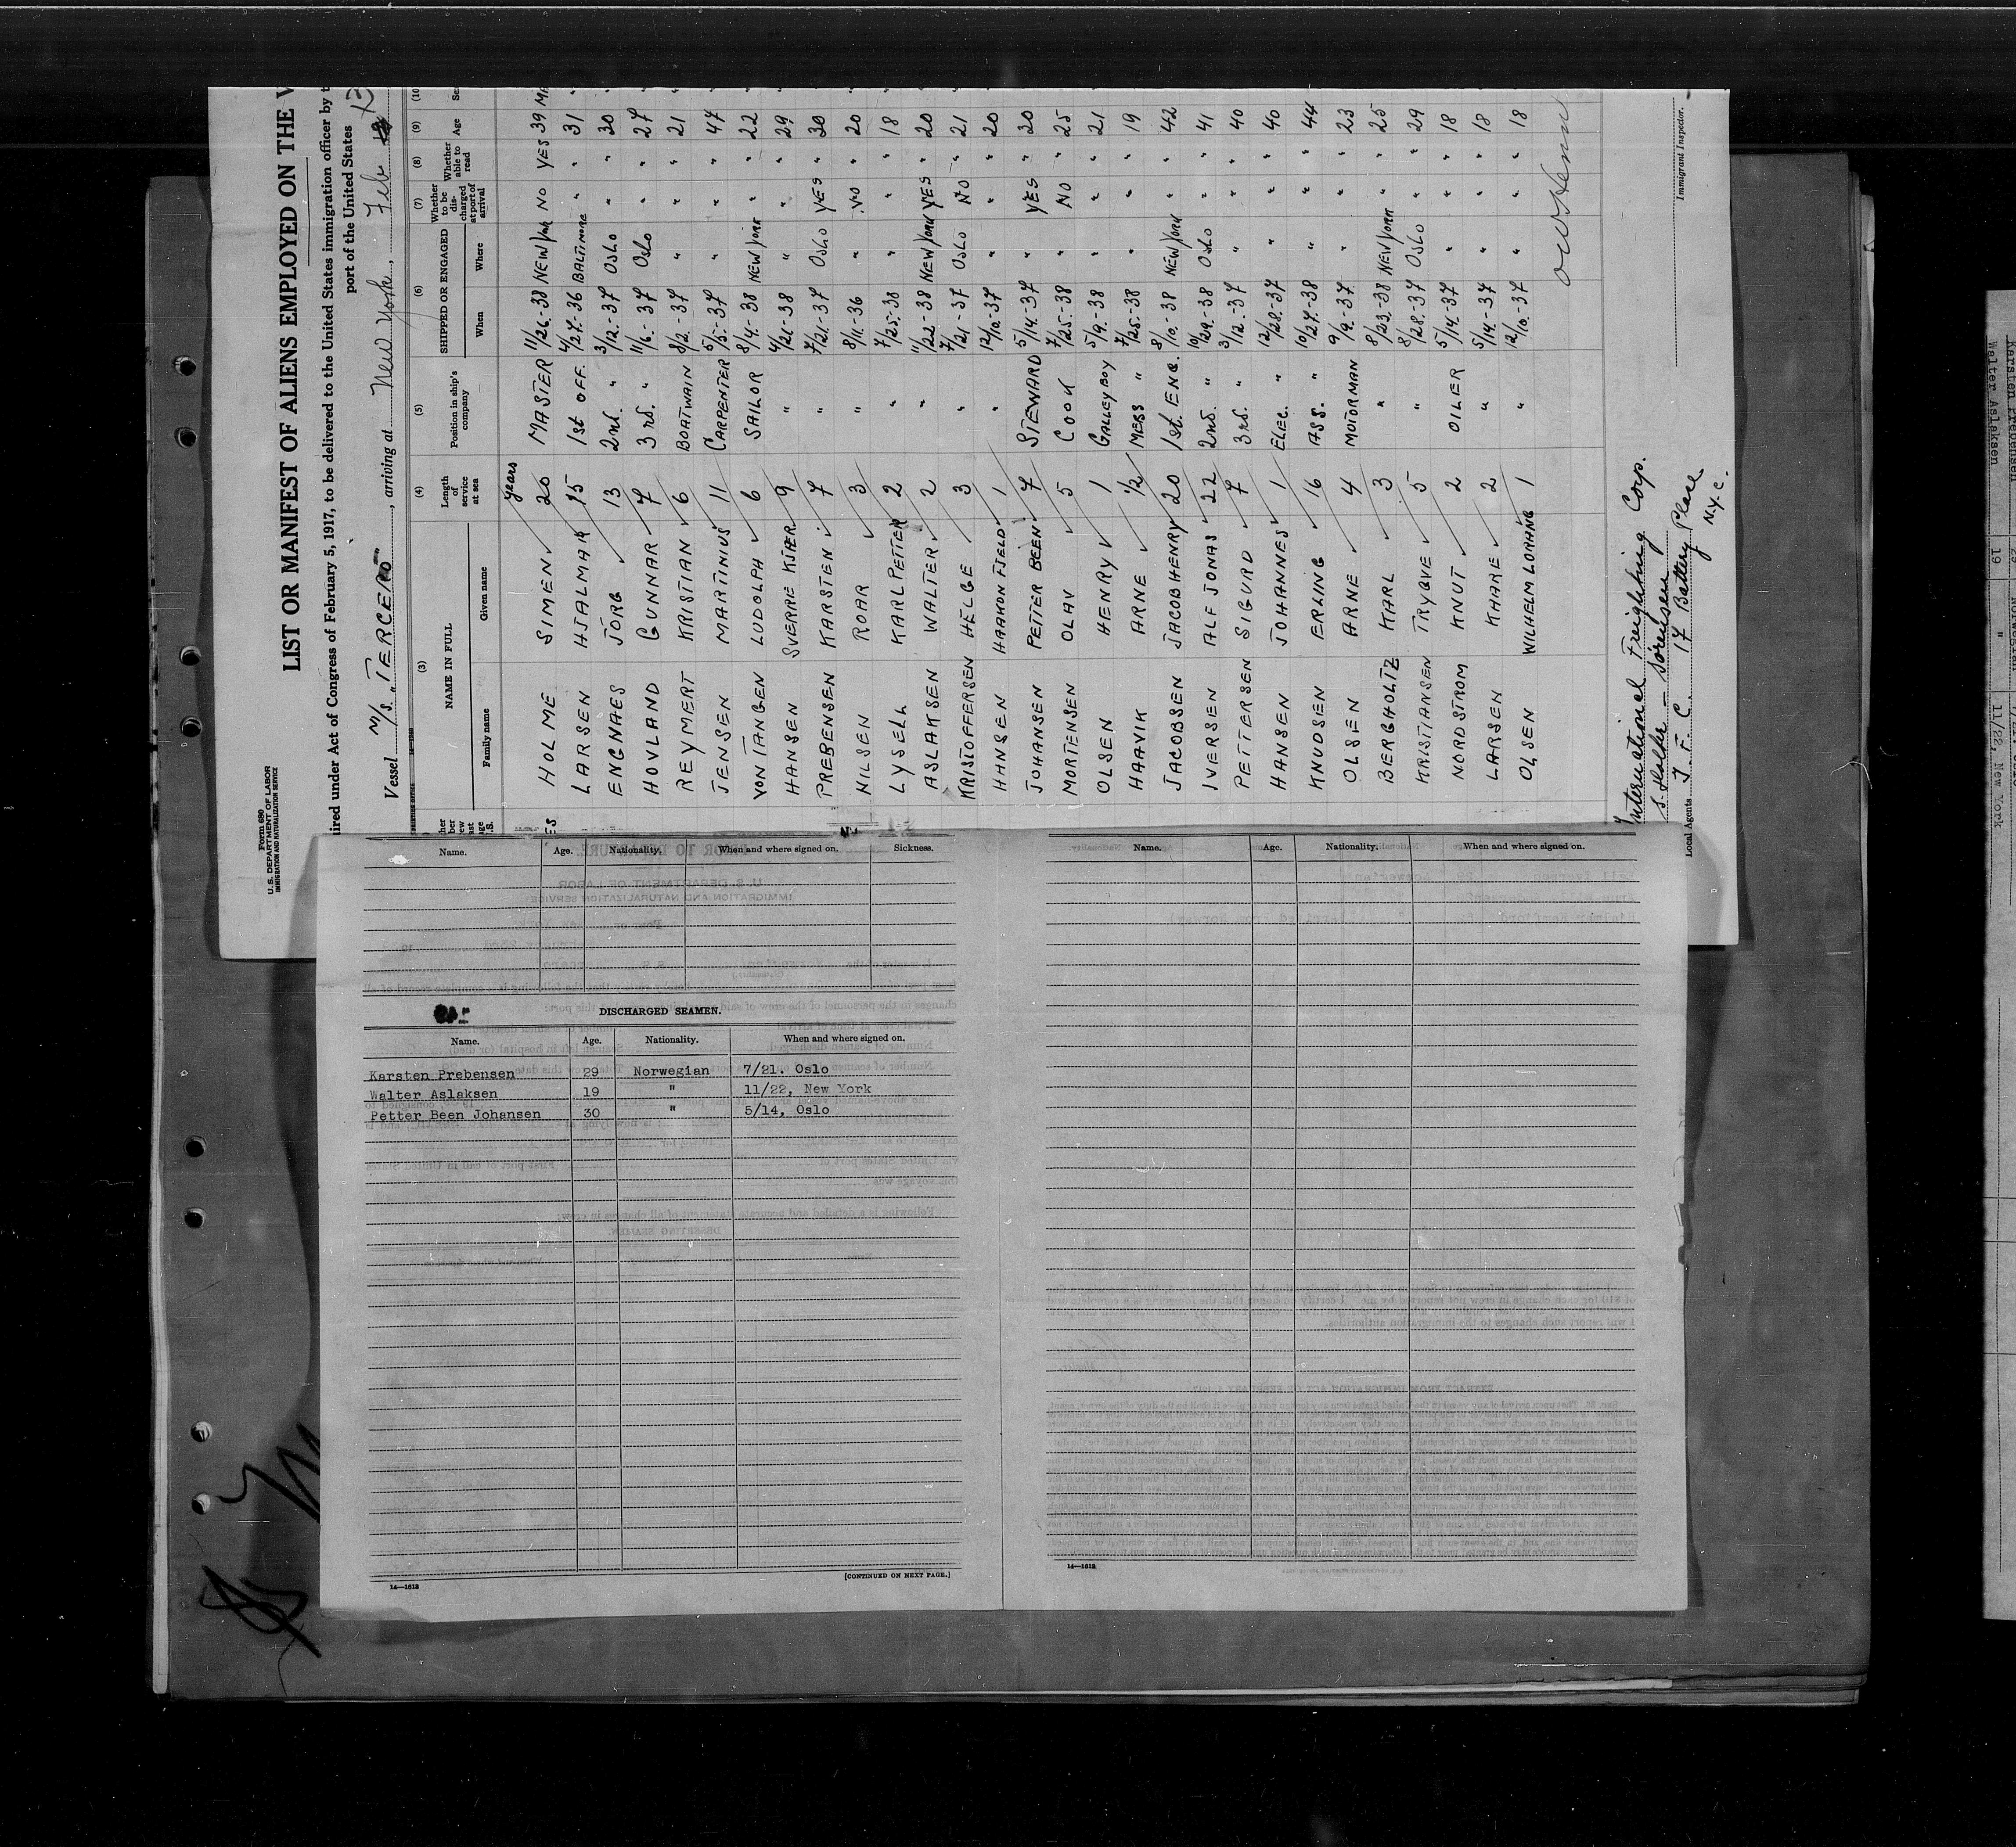 Form 680
U. S. DEPARTMENT OF LABOR
IMMIGRATION AND NATURALIZATION SERVICE
LIST OR MANIFEST OF ALIENS EMPLOYED ON THE
ired under Act of Congress of February 5, 1917, to be delivered to the United States immigration officer by
port of the United States
Vessel M/S. "TERCERO", arriving at New York, Feb
(3) (4) (5) (6) (7) (8) (9) (10
NAME IN FULL Length of service at sea Position in ship's company SHIPPED OR ENGAGED Whether to be discharged at port of arrival Whether able to read Age Se
Family name Given name When Where
years
HOLME SIMEN 20 MASTER 11/26.-38 NEW YORK NO YES 39
LARSEN HJALMAR 15 1st OFF. 4/27.-36 BALTIMORE " " 31 "
ENGNAES JÖRG 13 2nd. " 3/12.-37 OSLO " " 30 "
HOVLAND GUNNAR 7 3rd. " 11/6.-37 OSLO " " 27 "
REYMERT KRISTIAN 6 BOATWAIN 8/2.-37 " " " 21 "
JENSEN MARTINIUS 11 CARPENTER 5/5.-37 " " " 47 "
VON TANGEN LUDOLPH 6 SAILOR 8/4.-38 NEW YORK " " 22 "
HANSEN SVERRE KJÆR 9 " 4/21.-38 " " " 29 "
PREBENSEN KARSTEN 7 " 7/21.-37 OSLO YES " 30 "
NILSEN ROAR 3 " 8/11.-36 " NO " 20 "
LYSELL KARL PETTER 2 " 7/25.-38 " " " 18 "
ASLAKSEN WALTER 2 " 11/22.-38 NEW YORK YES " 20 "
KRISTOFFERSEN HELGE 3 " 7/21.-37 OSLO NO " 21 "
HANSEN HAAKON FJELD 1 " 12/10.-37 " " " 20
JOHANSEN PETTER BEEN 7 STEWARD 5/14.-37 " YES " 30
MORTENSEN OLAV 5 COOK 7/25.-38 " NO " 25
OLSEN HENRY 1 GALLEY BOY 5/9.-38 " " " 21
HAAVIK ARNE 1/2 MESS " 7/25.-38 " " " 19
JACOBSEN JACOB HENRY 20 1st. ENG. 8/10.-38 NEW YORK " " 42
IVERSEN ALF JONAS 22 2nd. " 10/29.-38 OSLO " " 41
PETTERSEN SIGURD 7 3rd. " 3/12.-37 " " " 40
HANSEN JOHANNES 1 ELEC. " 12/28.-37 " " " 40
KNUDSEN ERLING 16 ASS. " 10/27.-38 " " " 44
OLSEN ARNE 4 MOTORMAN 9/9.-37. " " " 23
BERGHOLTZ KARL 3 " 8/23.-38 NEW YORK " " 25
KRISTIANSEN TRYGVE 5 " 8/28.-37 OSLO " " 29
NORDSTROM KNUT 2 OILER 5/14.-37 " " " 18
LARSEN KHARE 2 " 5/14.-37 " " " 18
OLSEN WILHELM LORANG 1 " 12/10.-37 " " " 18
International Freighting Corp.
Sörensen
Local Agents I. F. C. 17 Battery Place
N.Y.C.
Immigrant Inspector.
Name. Age. Nationality. When and where signed on. Sickness.
DISCHARGED SEAMEN.
Name. Age. Nationality. When and where signed on.
Karsten Prebensen 29 Norwegian 7/21. Oslo
Walter Aslaksen 19 " 11/22, New York
Petter Been Johansen 30 " 5/14, Oslo
14—1613
[CONTINUED ON NEXT PAGE.]
Name. Age. Nationality. When and where signed on.
14—1613
Karsten Prebensen
Walter Aslaksen 19 " 11/22, New York